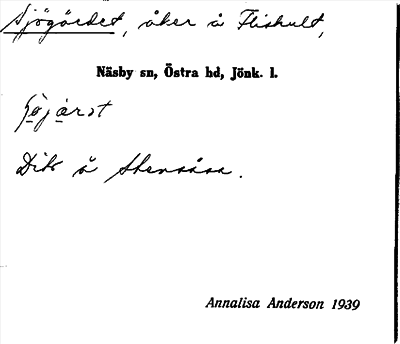 Sjögärdet, åker å Flishult,
Näsby sn, Östra hd, Jönk. l.
Dito å Stensåsa.
Annalisa Anderson 1939